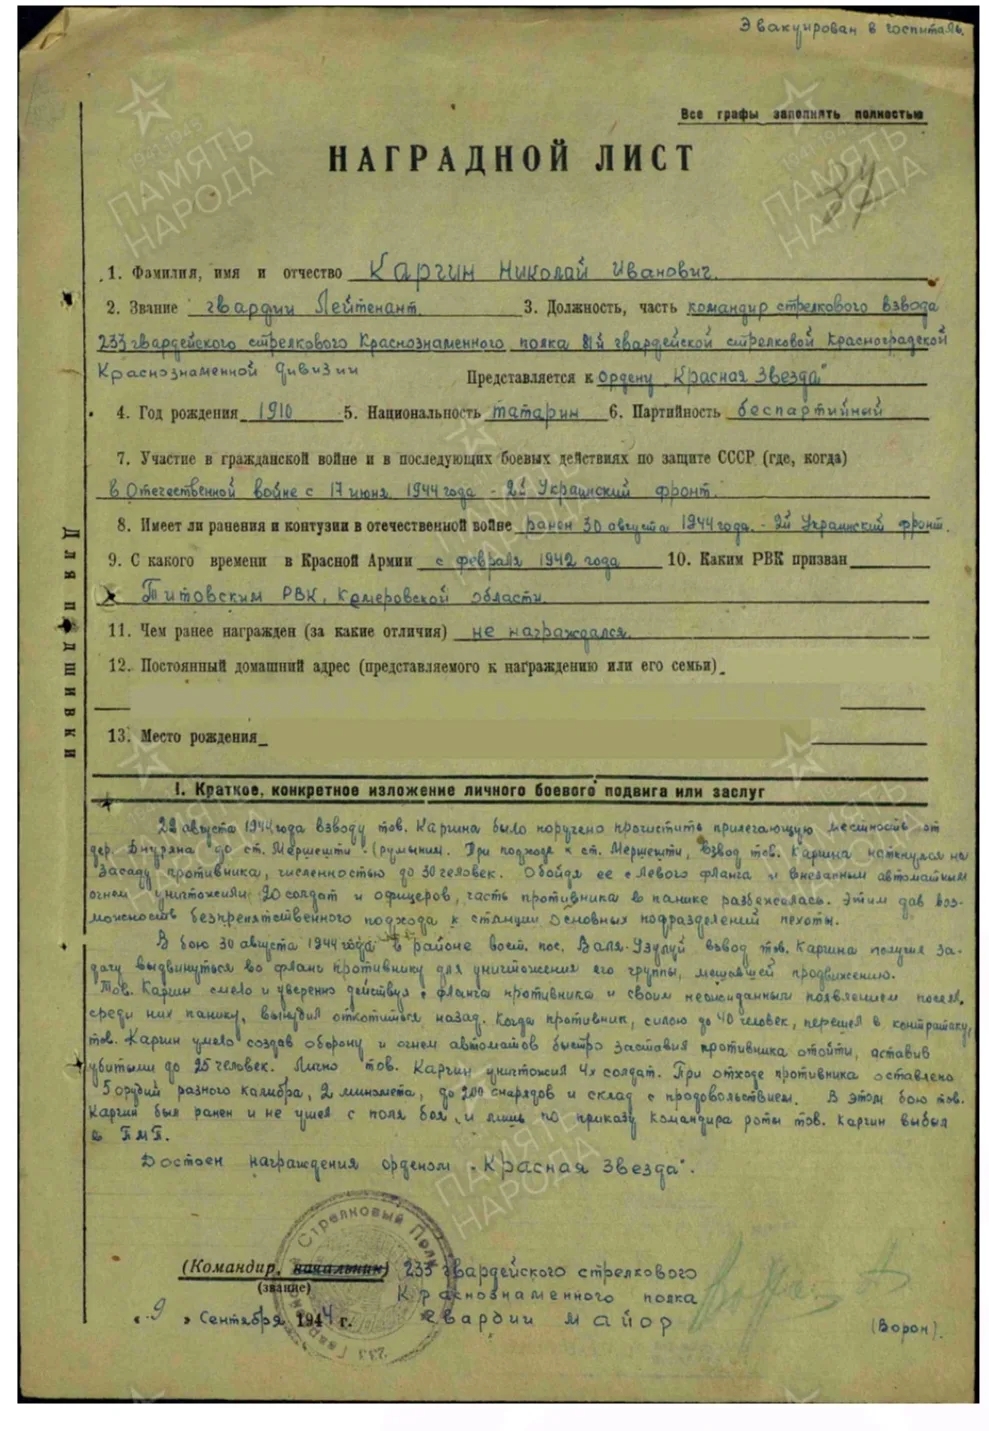 Эвакуирован в госпиталь.
Все графы заполнять полностью
НАГРАДНОЙ ЛИСТ
1. Фамилия, имя и отчество Каргин Николай Иванович.
2. Звание гвардии Лейтенант. 3. Должность, часть командир стрелкового взвода
233 гвардейского стрелкового Краснознаменного полка 81й гвардейской стрелковой Красноградской
Краснознаменной дивизии Представляется к Ордену „Красная Звезда"
4. Год рождения 1910 5. Национальность татарин 6. Партийность беспартийный
7. Участие в гражданской войне и в последующих боевых действиях по защите СССР (где, когда)
в Отечественной войне с 17 июня 1944 года - 2й Украинский фронт.
8. Имеет ли ранения и контузии в отечественной войне ранен 30 августа 1944 года. - 2й Украинский фронт.
9. С какого времени в Красной Армии с февраля 1942 года 10. Каким РВК призван
Титовским РВК, Кемеровской области.
11. Чем ранее награжден (за какие отличия) не награждался.
12. Постоянный домашний адрес (представляемого к награждению или его семьи)
13. Место рождения
Для подшивки
I. Краткое, конкретное изложение личного боевого подвига или заслуг
22 августа 1944 года взводу тов. Каргина было поручено прочистить прилегающую местность от
дер. до ст. Мершешти (румыния). При подходе к ст. Мершешти, взвод тов. Каргина наткнулся на
засаду противника, численностью до 30 человек. Обойдя ее с левого фланга и внезапным автоматным
огнем уничтожили 20 солдат и офицеров, часть противника в панике разбежалась. Этим дав воз-
можность безпрепятственного подхода к станции основных подразделений пехоты.
В бою 30 августа 1944 года в районе пос. Валя-Уздлуй взвод тов. Каргина получил за-
дачу выдвинуться во фланг противнику для уничтожения его группы, мешавшей продвижению.
Тов. Каргин смело и уверенно действуя с фланга противника и своим неожиданным появлением посеял
среди них панику, вынудил откотиться назад. Когда противник, силою до 40 человек, перешел в контратаку,
тов. Каргин умело создав оборону и огнем автоматов быстро заставил противника отойти, оставив
убитыми до 25 человек. Лично тов. Каргин уничтожил 4х солдат. При отходе противника оставлено
5 орудий разного калибра, 2 миномета, до 200 снарядов и склад с продовольствием. В этом бою тов.
Каргин был ранен и не ушел с поля боя, и лишь по приказу командира роты тов. Каргин выбыл
в ПМП.
Достоен награждения орденом „Красная Звезда".
(Командир, начальник) 233 гвардейского стрелкового
(звание) Краснознаменного полка
„9" Сентября 1944 г. гвардии майор (Ворон).
Стрелковый Полк
233
ПАМЯТЬ НАРОДА
1941-1945